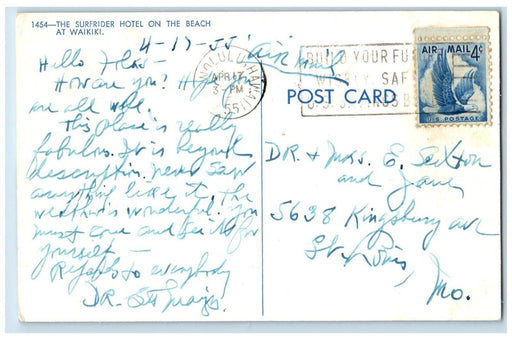 1454—THE SURFRIDER HOTEL ON THE BEACH
AT WAIKIKI.
4-17-55
Hello
How are you! Hope you
are all well.
This place is really
fabulous. It is beyond
description. never saw
anything like it. The
weather is wonderful. You
must come and see it for
yourself —
Regards to everybody
DR.
HONOLULU HAWAII
APR 17
3 PM
55
Air Mail
BUILD YOUR FU
WISELY SAF
U.S. SAVINGS B
AIR MAIL 4¢
U.S. POSTAGE
POST CARD
DR. + Mrs. E. Sexton
and
5638 Kingsbury ave
St. Louis,
Mo.